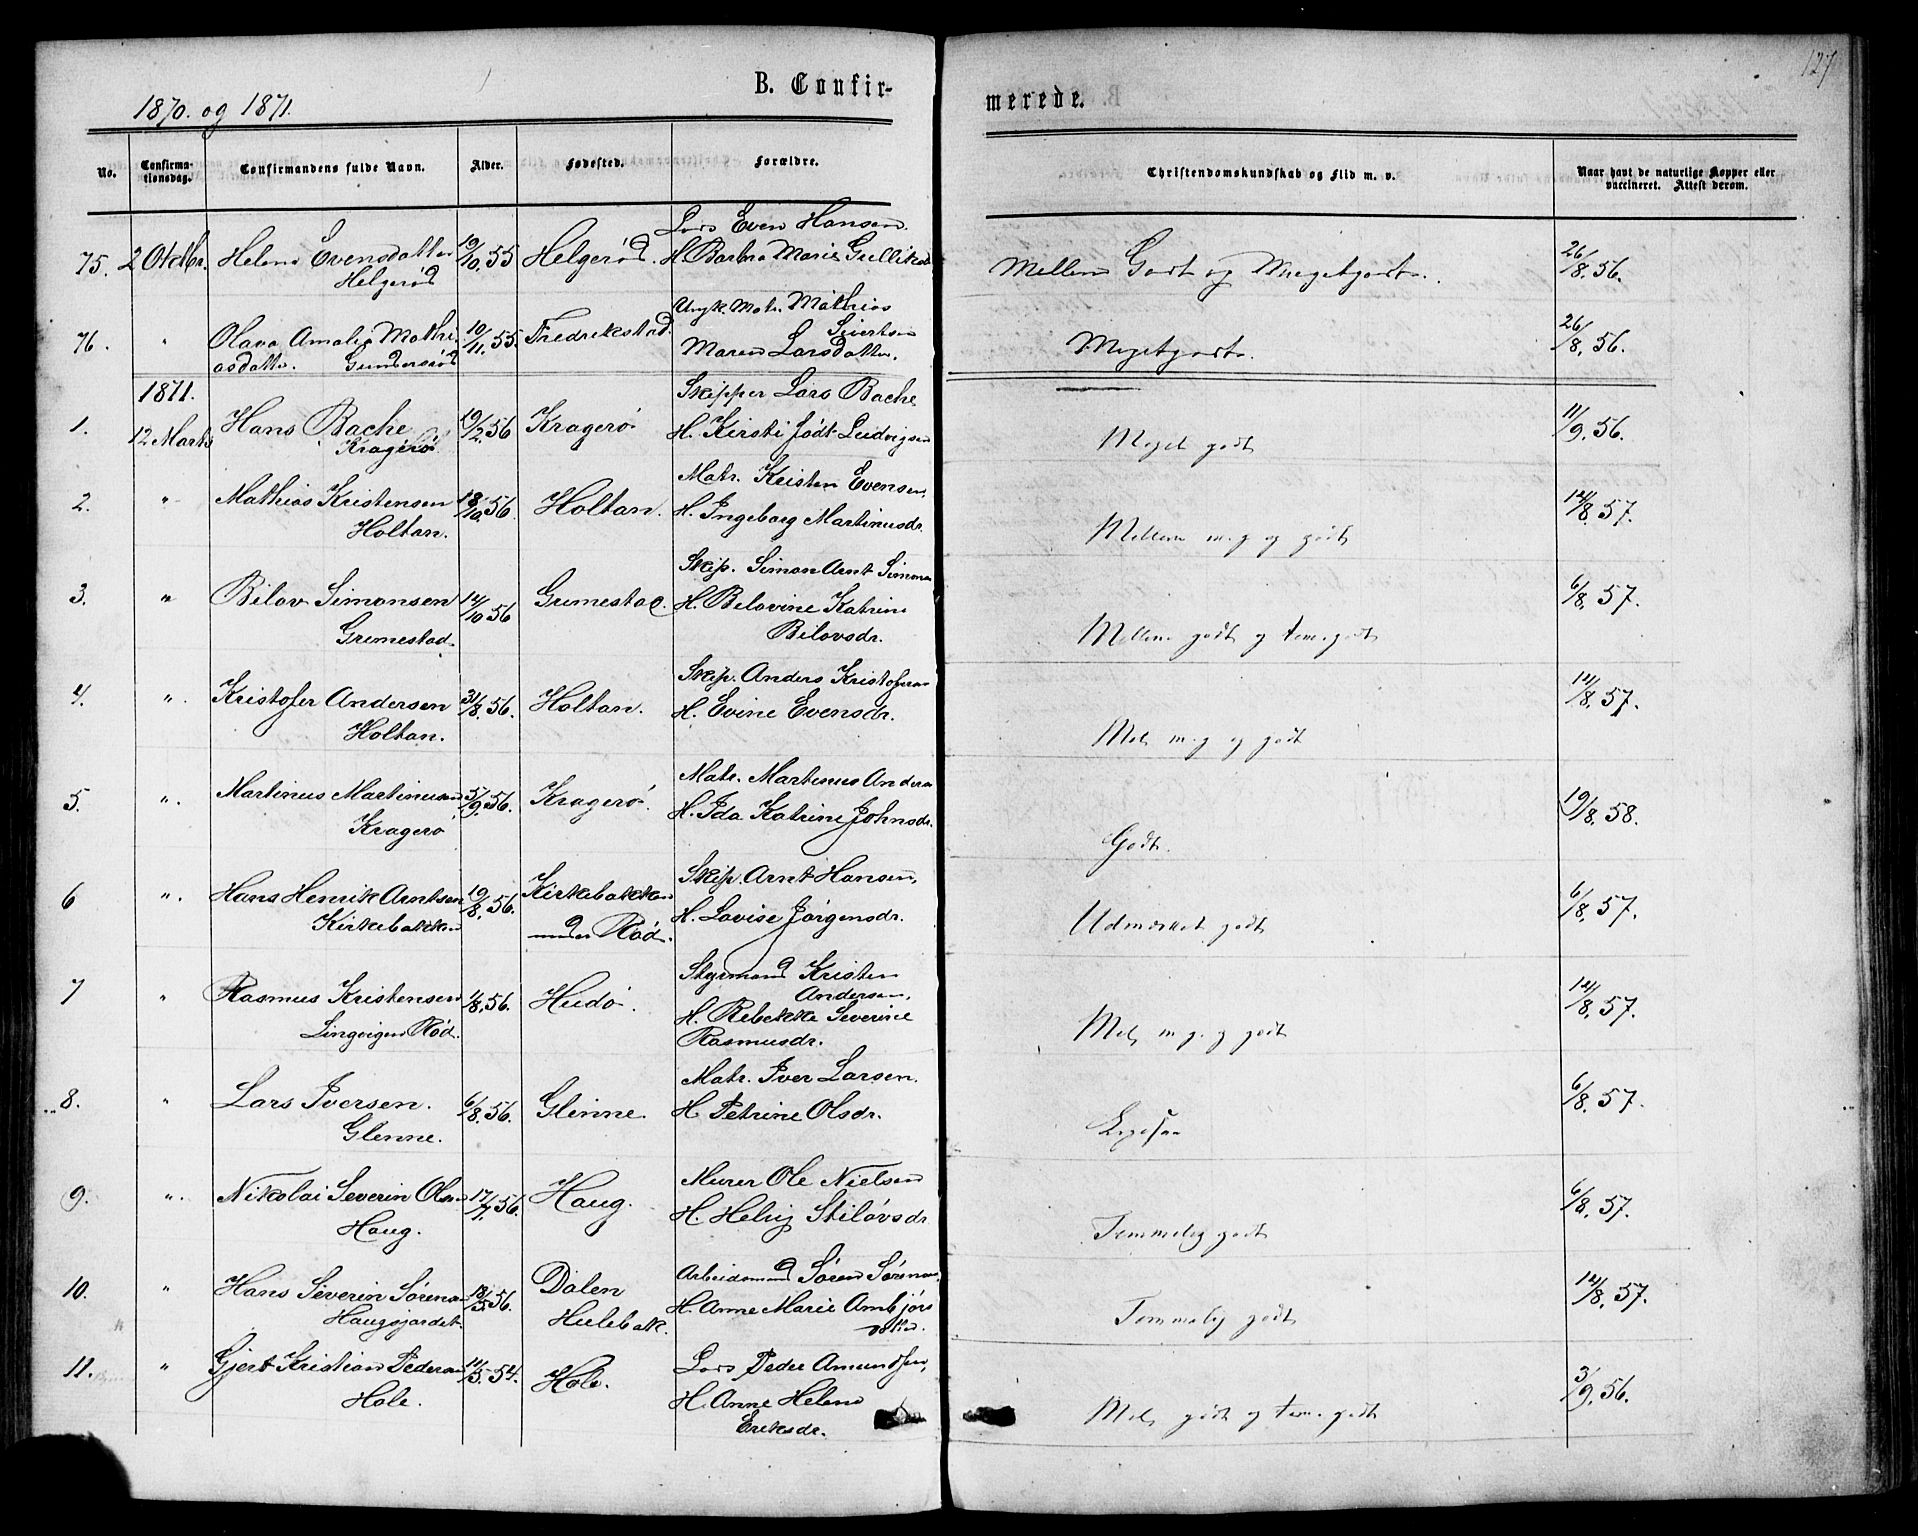 127
1870. og 1871.
B. Confir-
merede.
No.
Confirma-
tionsdag.
Confirmandens fulde Navn.
Alder.
Fødested.
Forældre.
Christendomskundskab og Flid m. v.
Naar havt de naturlige Kopper eller
vaccineret. Attest derom.
Lods Even Hansen
75. 2 Oktbr. Helene Evensdatter 19/10. 55 Helgerød. H. Barbra Marie Gulliksd Mellem Godt og Megetgodt. 26/8. 56.
Helgerød
Ungk. Matr. Mathias
76. " Olava Amalie Mathi 10/11. 55. Fredrikstad. Siertsen Megetgodt. 26/8. 56.
asdatter. Gundersrød Maren Larsdatter.
1871. Skipper Lars Bache
1. 12 Marts Hans Bache 19/2. 56 Kragerø H. Kirsti født Ludvigsen Meget godt 11/9. 56.
Kragerø
Matr. Kristen Evensen,
2. " Mathias Kristensen 18/10. 56. Holtan. H. Ingeborg Martinusdr. Mellem m. g og godt 14/8. 57.
Holtan.
Skip. Simon Arnt Simons
3. " Bilov Simonsen 14/10 56 Grimestad. H. Bilovine Katrine Mellem godt og tem. godt 6/8. 57.
Grimestad. Bilovsdr.
Skip. Anders Kristofersn
4. " Kristofer Andersen 31/8. 56. Holtan. H. Evine Evensdr. Mel, m. g og godt 14/8. 57.
Holtan.
Matr. Martinus Andersn
5. " Martinus Martinusen 5/9. 56. Kragerø. H. Ida Katrine Johnsdr. Godt. 19/8. 58.
Kragerø
Skip. Arnt Hansen,
6 " Hans Henrik Arntsen 19/8. 56. Kirkebakken H. Lovise Jørgensdr. Udmærket godt 6/8. 57.
Kirkebakken under Rød.
Styrmand Kristen
Andersen,
7 " Rasmus Kristensen 1/8. 56. Hudø. H. Rebekke Severine Mel, m. g. og godt 14/8. 57.
Lingvigen Rød. Rasmusdr.
Matr. Iver Larsen.
8. " Lars Iversen. 6/8. 56. Glenne. H Petrine Olsdr. Ligesaa 6/8. 57.
Glenne.
Murer Ole Nielsen
9. " Nikolai Severin Olsen 17/7. 56. Haug. H. Helvig Stilovsdr Temmelig godt 6/8. 57.
Haug.
Arbeidsmand Søren Sørensen,
10. " Hans Severin Sørensn 18/5 56. Dalen H. Anne Marie Ambjørs Temmelig godt 14/8. 57.
Haugsjordet. Hulebak. datter.
11. " Gjert Kristian Pedersn 11/5. 54. Hole. Lods Peder Amundsen, Mel, godt og tem. godt 3/9. 56.
Hole. H. Anne Helene
Eriksdr.